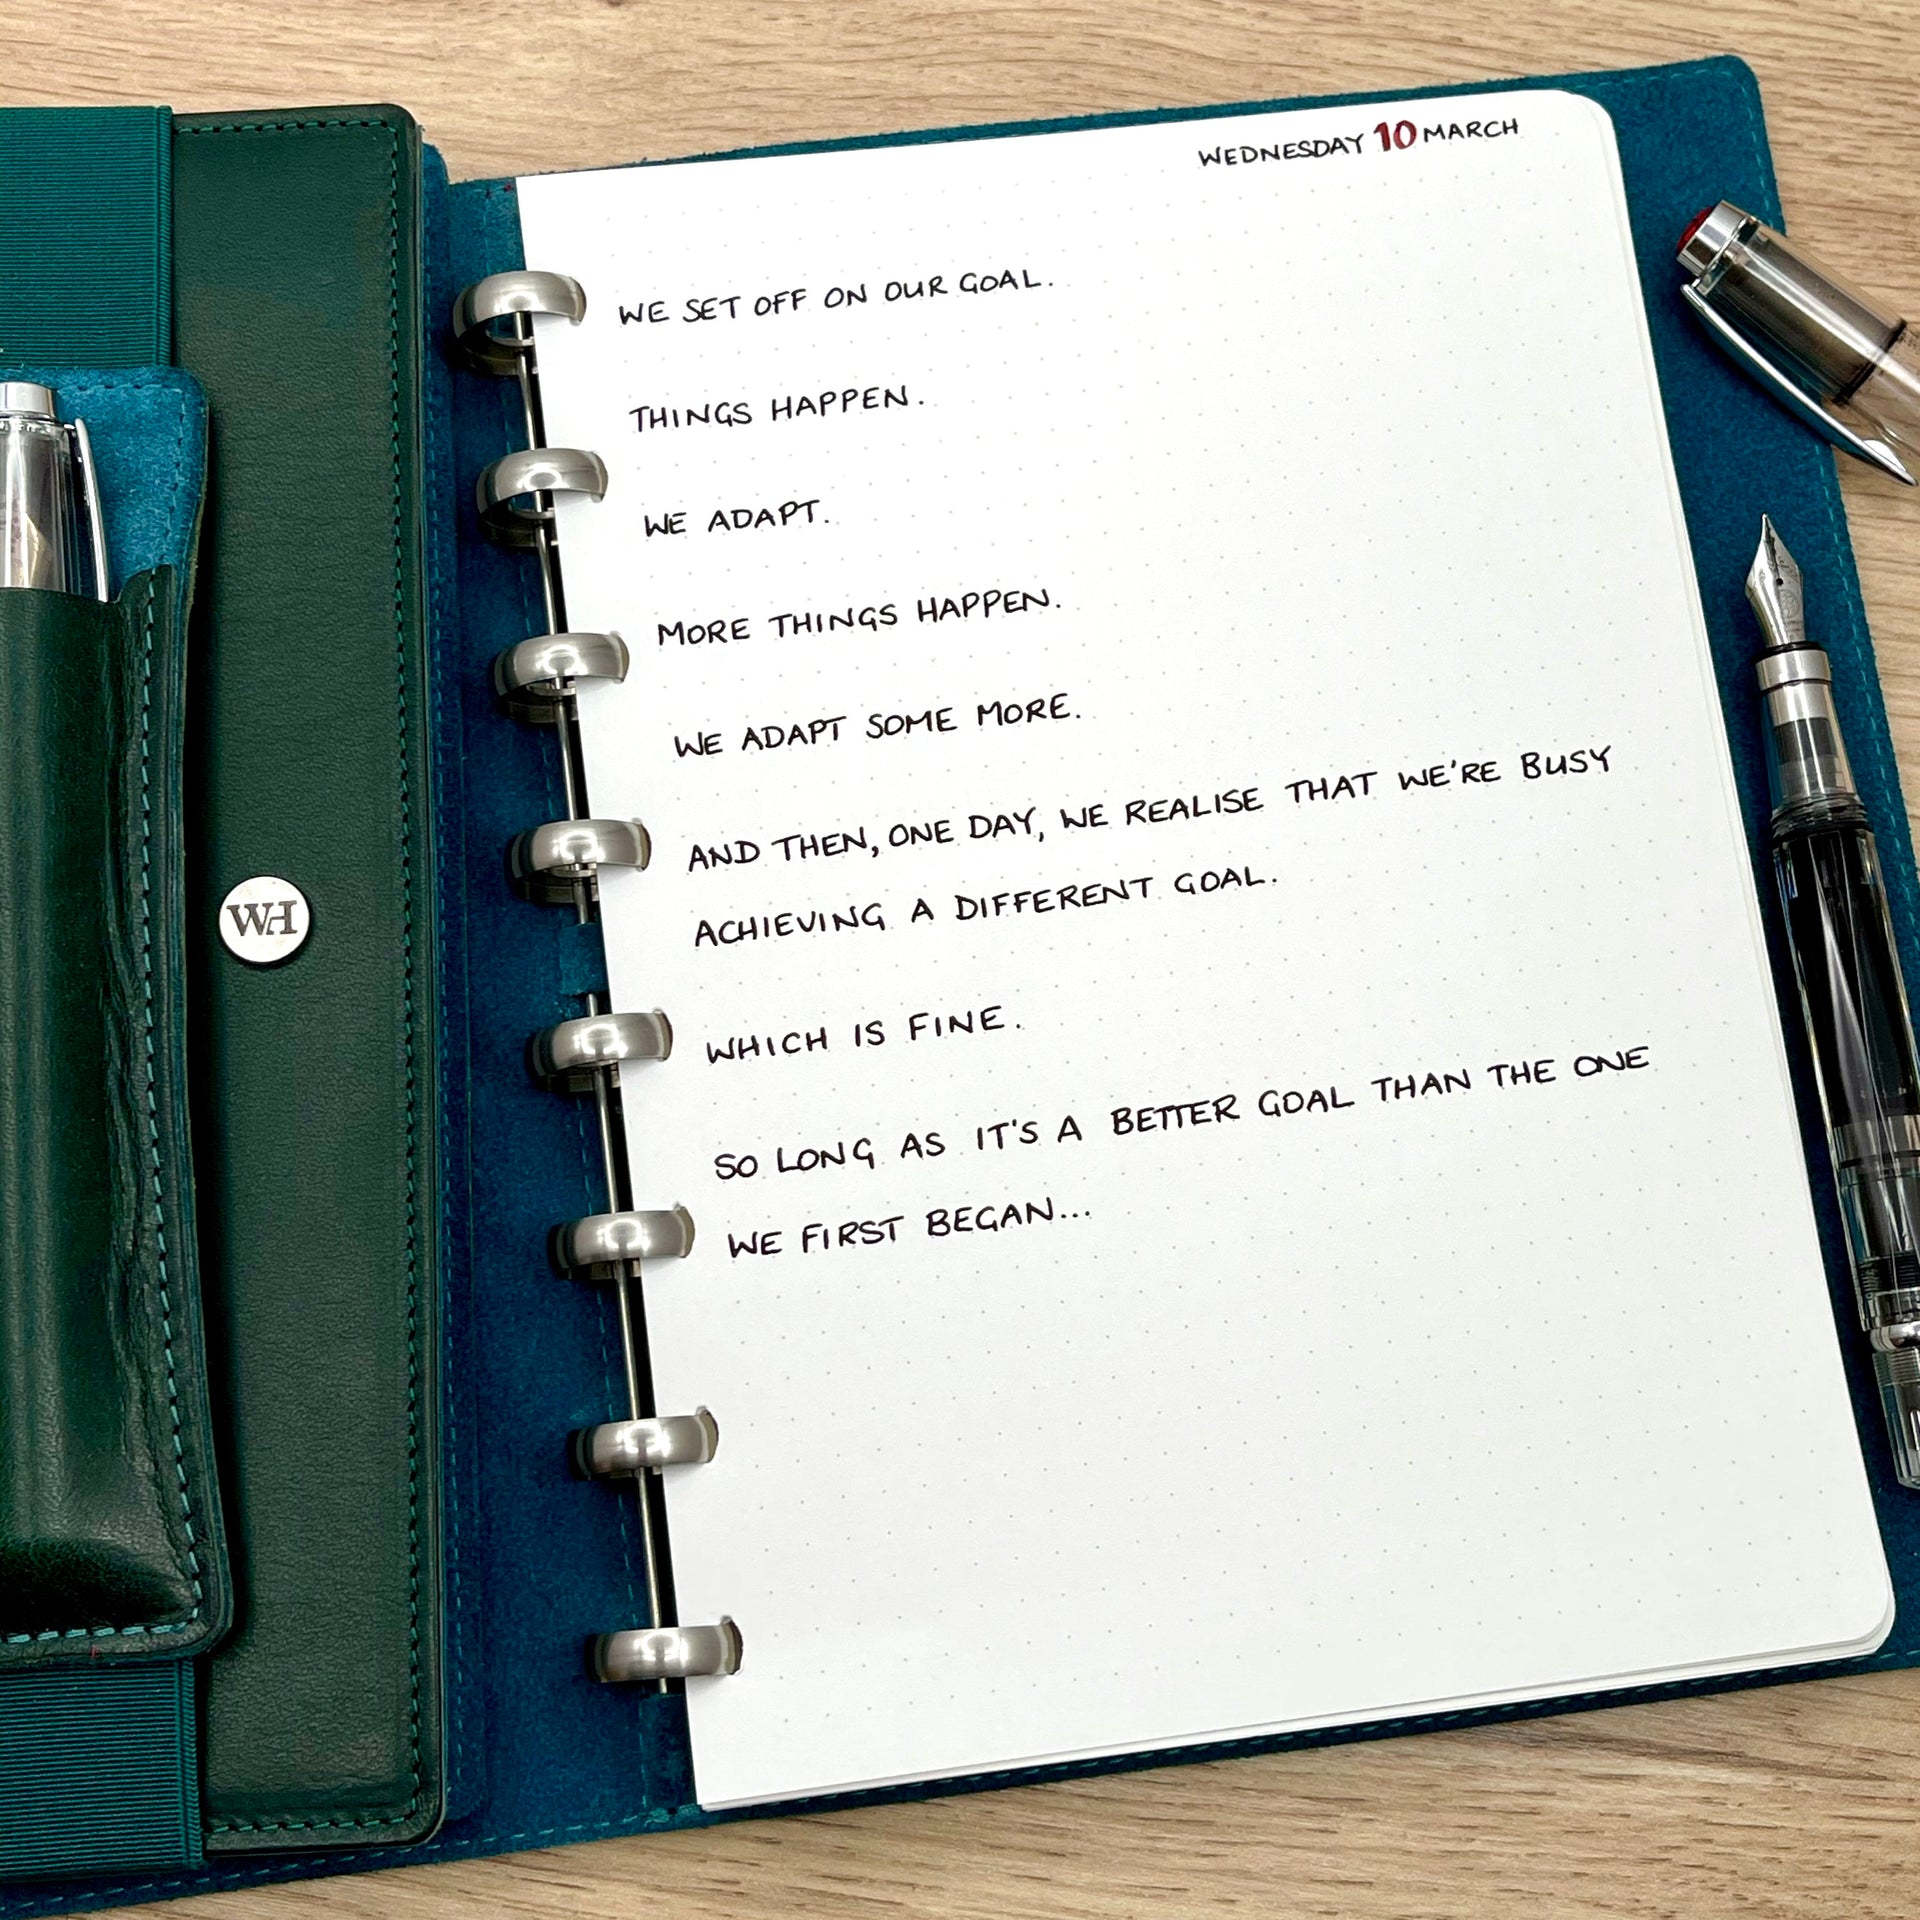 WEDNESDAY 10 MARCH
WE SET OFF ON OUR GOAL.
THINGS HAPPEN.
WE ADAPT.
MORE THINGS HAPPEN.
WE ADAPT SOME MORE.
AND THEN, ONE DAY, WE REALISE THAT WE'RE BUSY
ACHIEVING A DIFFERENT GOAL.
WHICH IS FINE.
SO LONG AS IT'S A BETTER GOAL THAN THE ONE
WE FIRST BEGAN...
WH